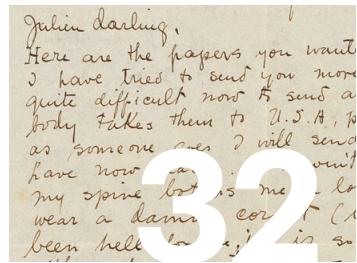 Julien darling,
Here are the papers you wante
I have tried to send you more
quite difficult now to send a
body takes them to U.S.A., p
as someone goes I will send
have now
my spine bothers me a lo
wear a damn corset (
been hell for me, it is so
32